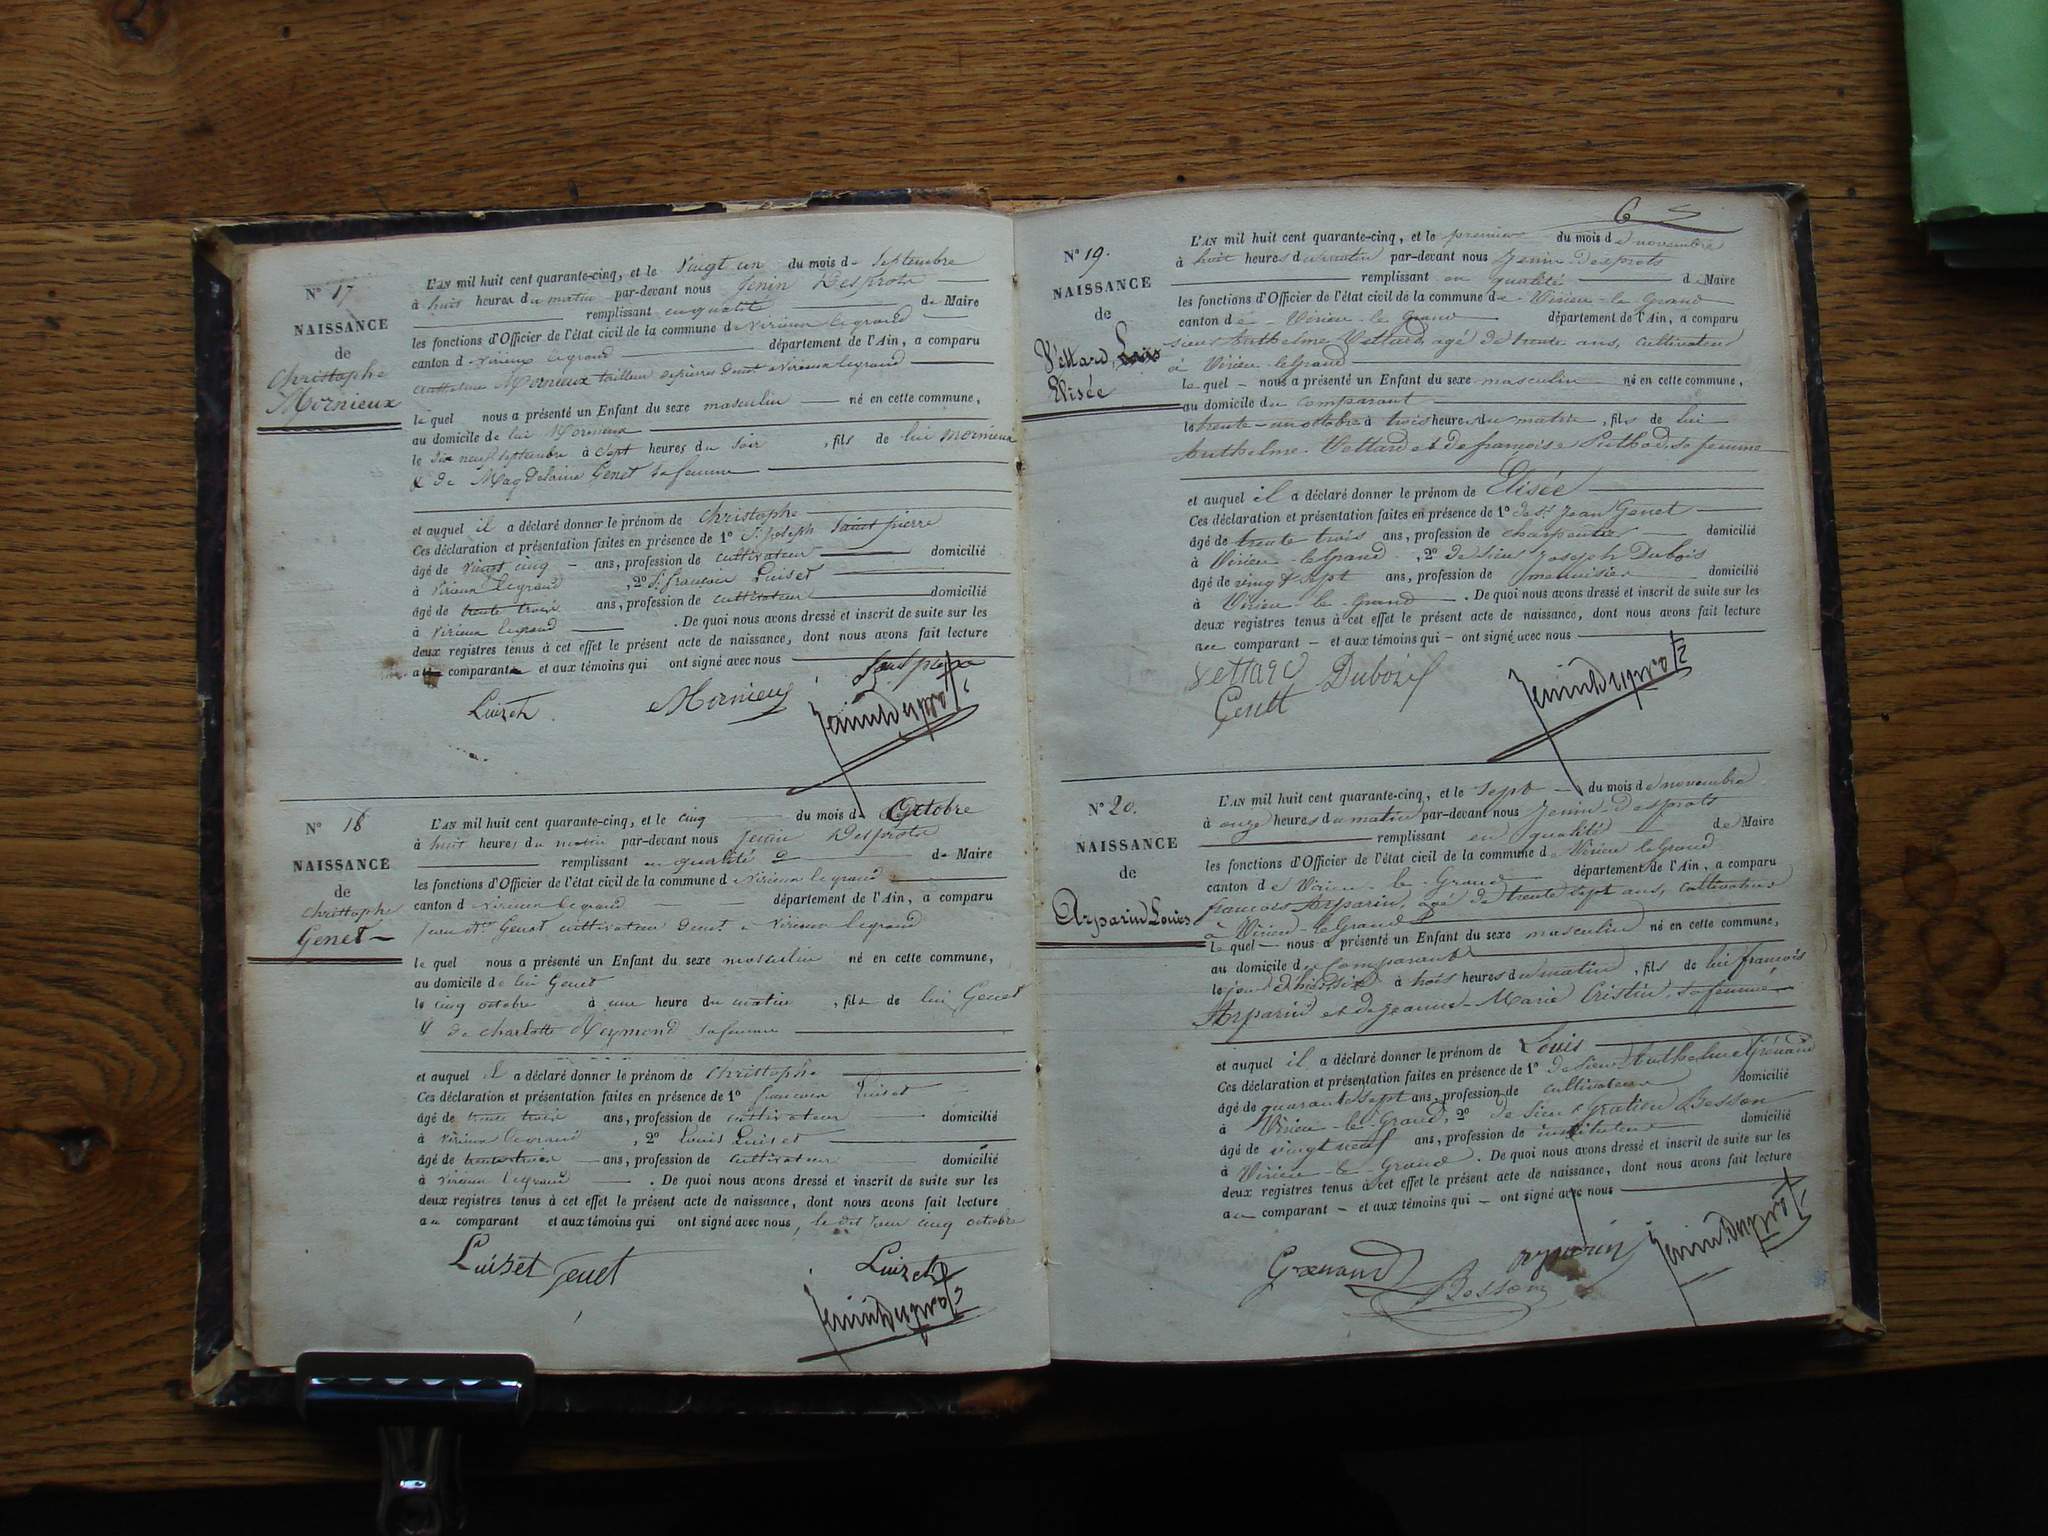 N° 17
NAISSANCE
de
Christophe
Mornieux
L'AN mil huit cent quarante-cinq, et le vingt un du mois de Septembre
à huit heures du matin par-devant nous Jenin Desprots
remplissant en qualité de Maire
les fonctions d'Officier de l'état civil de la commune de Virieux legrand
canton d Virieux legrand département de l'Ain, a comparu
Mornieux tailleur de pierres demt a Virieux legrand
le quel nous a présenté un Enfant du sexe masculin né en cette commune,
au domicile de lui Mornieux
le dix neuf septembre à sept heures du soir, fils de lui Mornieux
& de Magdelaine Genet sa femme
et auquel il a déclaré donner le prénom de Christophe
Ces déclaration et présentation faites en présence de 1° Sr Joseph Saint pierre
âgé de vingt cinq ans, profession de cultivateur domicilié
à Virieux legrand, 2° Sr francois Luiset
âgé de trente trois ans, profession de cultivateur domicilié
à Virieux legrand. De quoi nous avons dressé et inscrit de suite sur les
deux registres tenus à cet effet le présent acte de naissance, dont nous avons fait lecture
au comparant et aux témoins qui ont signé avec nous
Luizet Mornieux
N° 18
NAISSANCE
de
Christophe
Genet
L'AN mil huit cent quarante-cinq, et le cinq du mois d Octobre
à huit heures du matin par-devant nous Jenin Desprots
remplissant en qualité de Maire
les fonctions d'Officier de l'état civil de la commune d Virieux legrand
canton d Virieux legrand département de l'Ain, a comparu
Jean Genet cultivateur demt a Virieux legrand
le quel nous a présenté un Enfant du sexe masculin né en cette commune,
au domicile de lui Genet
le cinq octobre à une heure du matin, fils de lui Genet
& de Charlotte Reymond sa femme
et auquel il a déclaré donner le prénom de Christophe
Ces déclaration et présentation faites en présence de 1° francois Luiset
âgé de trente trois ans, profession de cultivateur domicilié
à Virieux legrand, 2° Louis Luiset
âgé de trente trois ans, profession de cultivateur domicilié
à Virieux legrand. De quoi nous avons dressé et inscrit de suite sur les
deux registres tenus à cet effet le présent acte de naissance, dont nous avons fait lecture
au comparant et aux témoins qui ont signé avec nous, le dit jour cinq octobre
Luizet Genet Luizet
6
N° 19.
NAISSANCE
de
Vettard
Elisée
L'AN mil huit cent quarante-cinq, et le premier du mois de novembre
à huit heures du matin par-devant nous Jenin-Desprots
remplissant en qualité de Maire
les fonctions d'Officier de l'état civil de la commune de Virieu-le-Grand
canton de Virieu-le-Grand département de l'Ain, a comparu
sieur Anthelme Vettard, agé de trente ans, cultivateur
à Virieu-leGrand
le quel nous a présenté un Enfant du sexe masculin né en cette commune,
au domicile du comparant
le trente-un octobre à trois heures du matin, fils de lui
Anthelme Vettard et de françoise sa femme
et auquel il a déclaré donner le prénom de Elisée
Ces déclaration et présentation faites en présence de 1° de Sr Jean Genet
âgé de trente trois ans, profession de charpentier domicilié
à Virieu-leGrand, 2° de sieur Joseph Dubois
âgé de vingt sept ans, profession de menuisier domicilié
à Virieu-le-Grand. De quoi nous avons dressé et inscrit de suite sur les
deux registres tenus à cet effet le présent acte de naissance, dont nous avons fait lecture
au comparant et aux témoins qui ont signé avec nous
Vettard Dubois
Genet
N° 20.
NAISSANCE
de
Arparin Louis
L'AN mil huit cent quarante-cinq, et le sept du mois de novembre
à onze heures du matin par-devant nous Jenin-Desprots
remplissant en qualité de Maire
les fonctions d'Officier de l'état civil de la commune de Virieu leGrand
canton de Virieu-le-Grand département de l'Ain, a comparu
françois Arparin, agé de trente sept ans, cultivateur
à Virieu-leGrand
le quel nous a présenté un Enfant du sexe masculin né en cette commune,
au domicile du Comparant
le jour d'hier six à trois heures du matin, fils de lui françois
Arparin et de Jeanne-Marie Cristin, sa femme
et auquel il a déclaré donner le prénom de Louis
Ces déclaration et présentation faites en présence de 1° de sieur Anthelme Grénard
âgé de quarante sept ans, profession de cultivateur domicilié
à Virieu-le-Grand, 2° de sieur Gratien Besson
âgé de vingt neuf ans, profession de instituteur domicilié
à Virieu-le-Grand. De quoi nous avons dressé et inscrit de suite sur les
deux registres tenus à cet effet le présent acte de naissance, dont nous avons fait lecture
au comparant et aux témoins qui ont signé avec nous
Besson